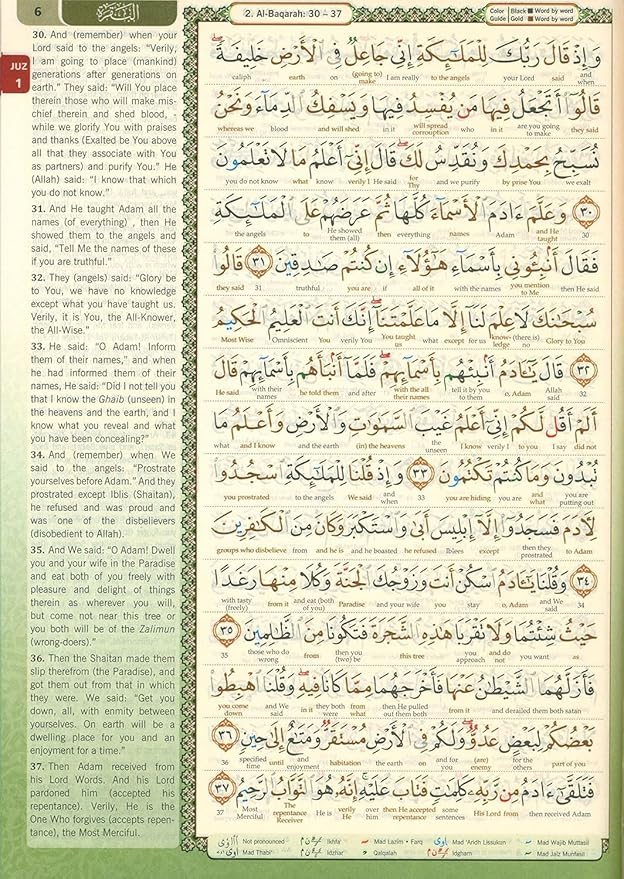 6
البقرة
2. Al-Baqarah: 30 – 37
Color Guide
Black Word by word
Gold Word by word
JUZ
1
30. And (remember) when your
Lord said to the angels: “Verily,
I am going to place (mankind)
generations after generations on
earth.” They said: “Will You place
therein those who will make mis-
chief therein and shed blood, -
while we glorify You with praises
and thanks (Exalted be You above
all that they associate with You
as partners) and purify You.” He
(Allah) said: “I know that which
you do not know.”
31. And He taught Adam all the
names (of everything) , then He
showed them to the angels and
said, “Tell Me the names of these
if you are truthful.”
32. They (angels) said: “Glory be
to You, we have no knowledge
except what you have taught us.
Verily, it is You, the All-Knower,
the All-Wise.”
33. He said: “O Adam! Inform
them of their names,” and when
he had informed them of their
names, He said: “Did I not tell you
that I know the Ghaib (unseen) in
the heavens and the earth, and I
know what you reveal and what
you have been concealing?”
34. And (remember) when We
said to the angels: “Prostrate
yourselves before Adam.” And they
prostrated except Iblis (Shaitan),
he refused and was proud and
was one of the disbelievers
(disobedient to Allah).
35. And We said: “O Adam! Dwell
you and your wife in the Paradise
and eat both of you freely with
pleasure and delight of things
therein as wherever you will,
but come not near this tree or
you both will be of the Zalimun
(wrong-doers).”
36. Then the Shaitan made them
slip therefrom (the Paradise), and
got them out from that in which
they were. We said: “Get you
down, all, with enmity between
yourselves. On earth will be a
dwelling place for you and an
enjoyment for a time.”
37. Then Adam received from
his Lord Words. And his Lord
pardoned him (accepted his
repentance). Verily, He is the
One Who forgives (accepts repen-
tance), the Most Merciful.
وَإِذْ قَالَ رَبُّكَ لِلْمَلَٰٓئِكَةِ إِنِّي جَاعِلٌ فِي ٱلْأَرْضِ خَلِيفَةً
caliph earth on (going to) make I am really to the angels your Lord said and when
قَالُوٓا۟ أَتَجْعَلُ فِيهَا مَن يُفْسِدُ فِيهَا وَيَسْفِكُ ٱلدِّمَآءَ وَنَحْنُ
whereas we blood and will shed in it will spread corruoption who in it are you going to make they said
نُسَبِّحُ بِحَمْدِكَ وَنُقَدِّسُ لَكَ قَالَ إِنِّيٓ أَعْلَمُ مَا لَا تَعْلَمُونَ
you do not know what know verily I He said for Thy and we purify by prise You we exalt
٣٠ وَعَلَّمَ ءَادَمَ ٱلْأَسْمَآءَ كُلَّهَا ثُمَّ عَرَضَهُمْ عَلَى ٱلْمَلَٰٓئِكَةِ
the angels to He showed them (all) then everything names Adam and He taught 30
فَقَالَ أَنۢبِـُٔونِي بِأَسْمَآءِ هَٰٓؤُلَآءِ إِن كُنتُمْ صَٰدِقِينَ ٣١ قَالُوا۟
they said 31 truthful you are if all of it with the names you mention to Me then He said
سُبْحَٰنَكَ لَا عِلْمَ لَنَآ إِلَّا مَا عَلَّمْتَنَآ إِنَّكَ أَنتَ ٱلْعَلِيمُ ٱلْحَكِيمُ
Most Wise Omniscient You verily You You taught us what except for us know- ledge no Glory to You
٣٢ قَالَ يَٰٓـَٔادَمُ أَنۢبِئْهُم بِأَسْمَآئِهِمْ فَلَمَّآ أَنۢبَأَهُم بِأَسْمَآئِهِمْ قَالَ
He said with their names he told them and after with the all their names tell it by you to them o, Adam Allah said 32
أَلَمْ أَقُل لَّكُمْ إِنِّيٓ أَعْلَمُ غَيْبَ ٱلسَّمَٰوَٰتِ وَٱلْأَرْضِ وَأَعْلَمُ مَا
what and I know and the earth (in) the heavens the unseen I know verily I to you I say did not
تُبْدُونَ وَمَا كُنتُمْ تَكْتُمُونَ ٣٣ وَإِذْ قُلْنَا لِلْمَلَٰٓئِكَةِ ٱسْجُدُوا۟
you prostrated to the angels We said and when 33 you are hiding you are and what you are putting out
لِءَادَمَ فَسَجَدُوٓا۟ إِلَّآ إِبْلِيسَ أَبَىٰ وَٱسْتَكْبَرَ وَكَانَ مِنَ ٱلْكَٰفِرِينَ
groups who disbelieve from and he is and he boasted he refused Iblees except then they prostrated to Adam
٣٤ وَقُلْنَا يَٰٓـَٔادَمُ ٱسْكُنْ أَنتَ وَزَوْجُكَ ٱلْجَنَّةَ وَكُلَا مِنْهَا رَغَدًا
with tasty (freely) from it and eat (both of you) Paradise and your wife you stay o, Adam and We said 34
حَيْثُ شِئْتُمَا وَلَا تَقْرَبَا هَٰذِهِ ٱلشَّجَرَةَ فَتَكُونَا مِنَ ٱلظَّٰلِمِينَ ٣٥
35 those who do wrong from then you (two) be this tree you approach and do not you want as
فَأَزَلَّهُمَا ٱلشَّيْطَٰنُ عَنْهَا فَأَخْرَجَهُمَا مِمَّا كَانَا فِيهِ وَقُلْنَا ٱهْبِطُوا۟
you come down and We said in it they both were from what then He pulled out them both from it satan and derailed them both
بَعْضُكُمْ لِبَعْضٍ عَدُوٌّ وَلَكُمْ فِي ٱلْأَرْضِ مُسْتَقَرٌّ وَمَتَٰعٌ إِلَىٰ حِينٍ ٣٦
36 specified time until and enjoyment habitation the earth on and for you (are) enemy (are) for the others part of you
فَتَلَقَّىٰٓ ءَادَمُ مِن رَّبِّهِۦ كَلِمَٰتٍ فَتَابَ عَلَيْهِ إِنَّهُۥ هُوَ ٱلتَّوَّابُ ٱلرَّحِيمُ ٣٧
37 Most Merciful The repentance Receiver He is verily He over him then He accepted repentance some sentences His Lord from then received Adam
Not pronounced Ikhfa' Mad Lazim • Farq Mad 'Aridh Lissukun Mad Wajib Muttasil
Mad Thabi' Idzhar Qalqalah Idgham Mad Jaiz Munfasil